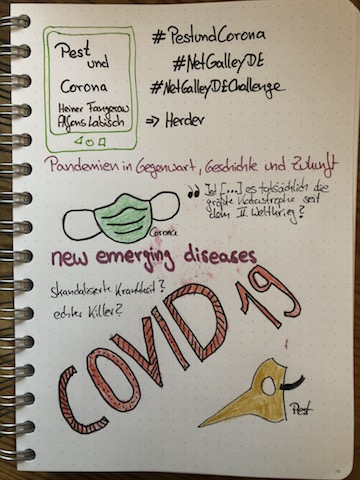 Pest
und
Corona
Heiner Fangerau
Alfons Labisch
#PestundCorona
#NetGalleyDE
#NetGalleyDEChallenge
=> Herder
Pandemien in Gegenwart, Geschichte und Zukunft
"Ist [...] es tatsächlich die
größte Katastrophe seit
dem II. Weltkrieg?
Corona
new emerging diseases
Skandalisierte Krankheit?
echter Killer?
COVID 19
Pest